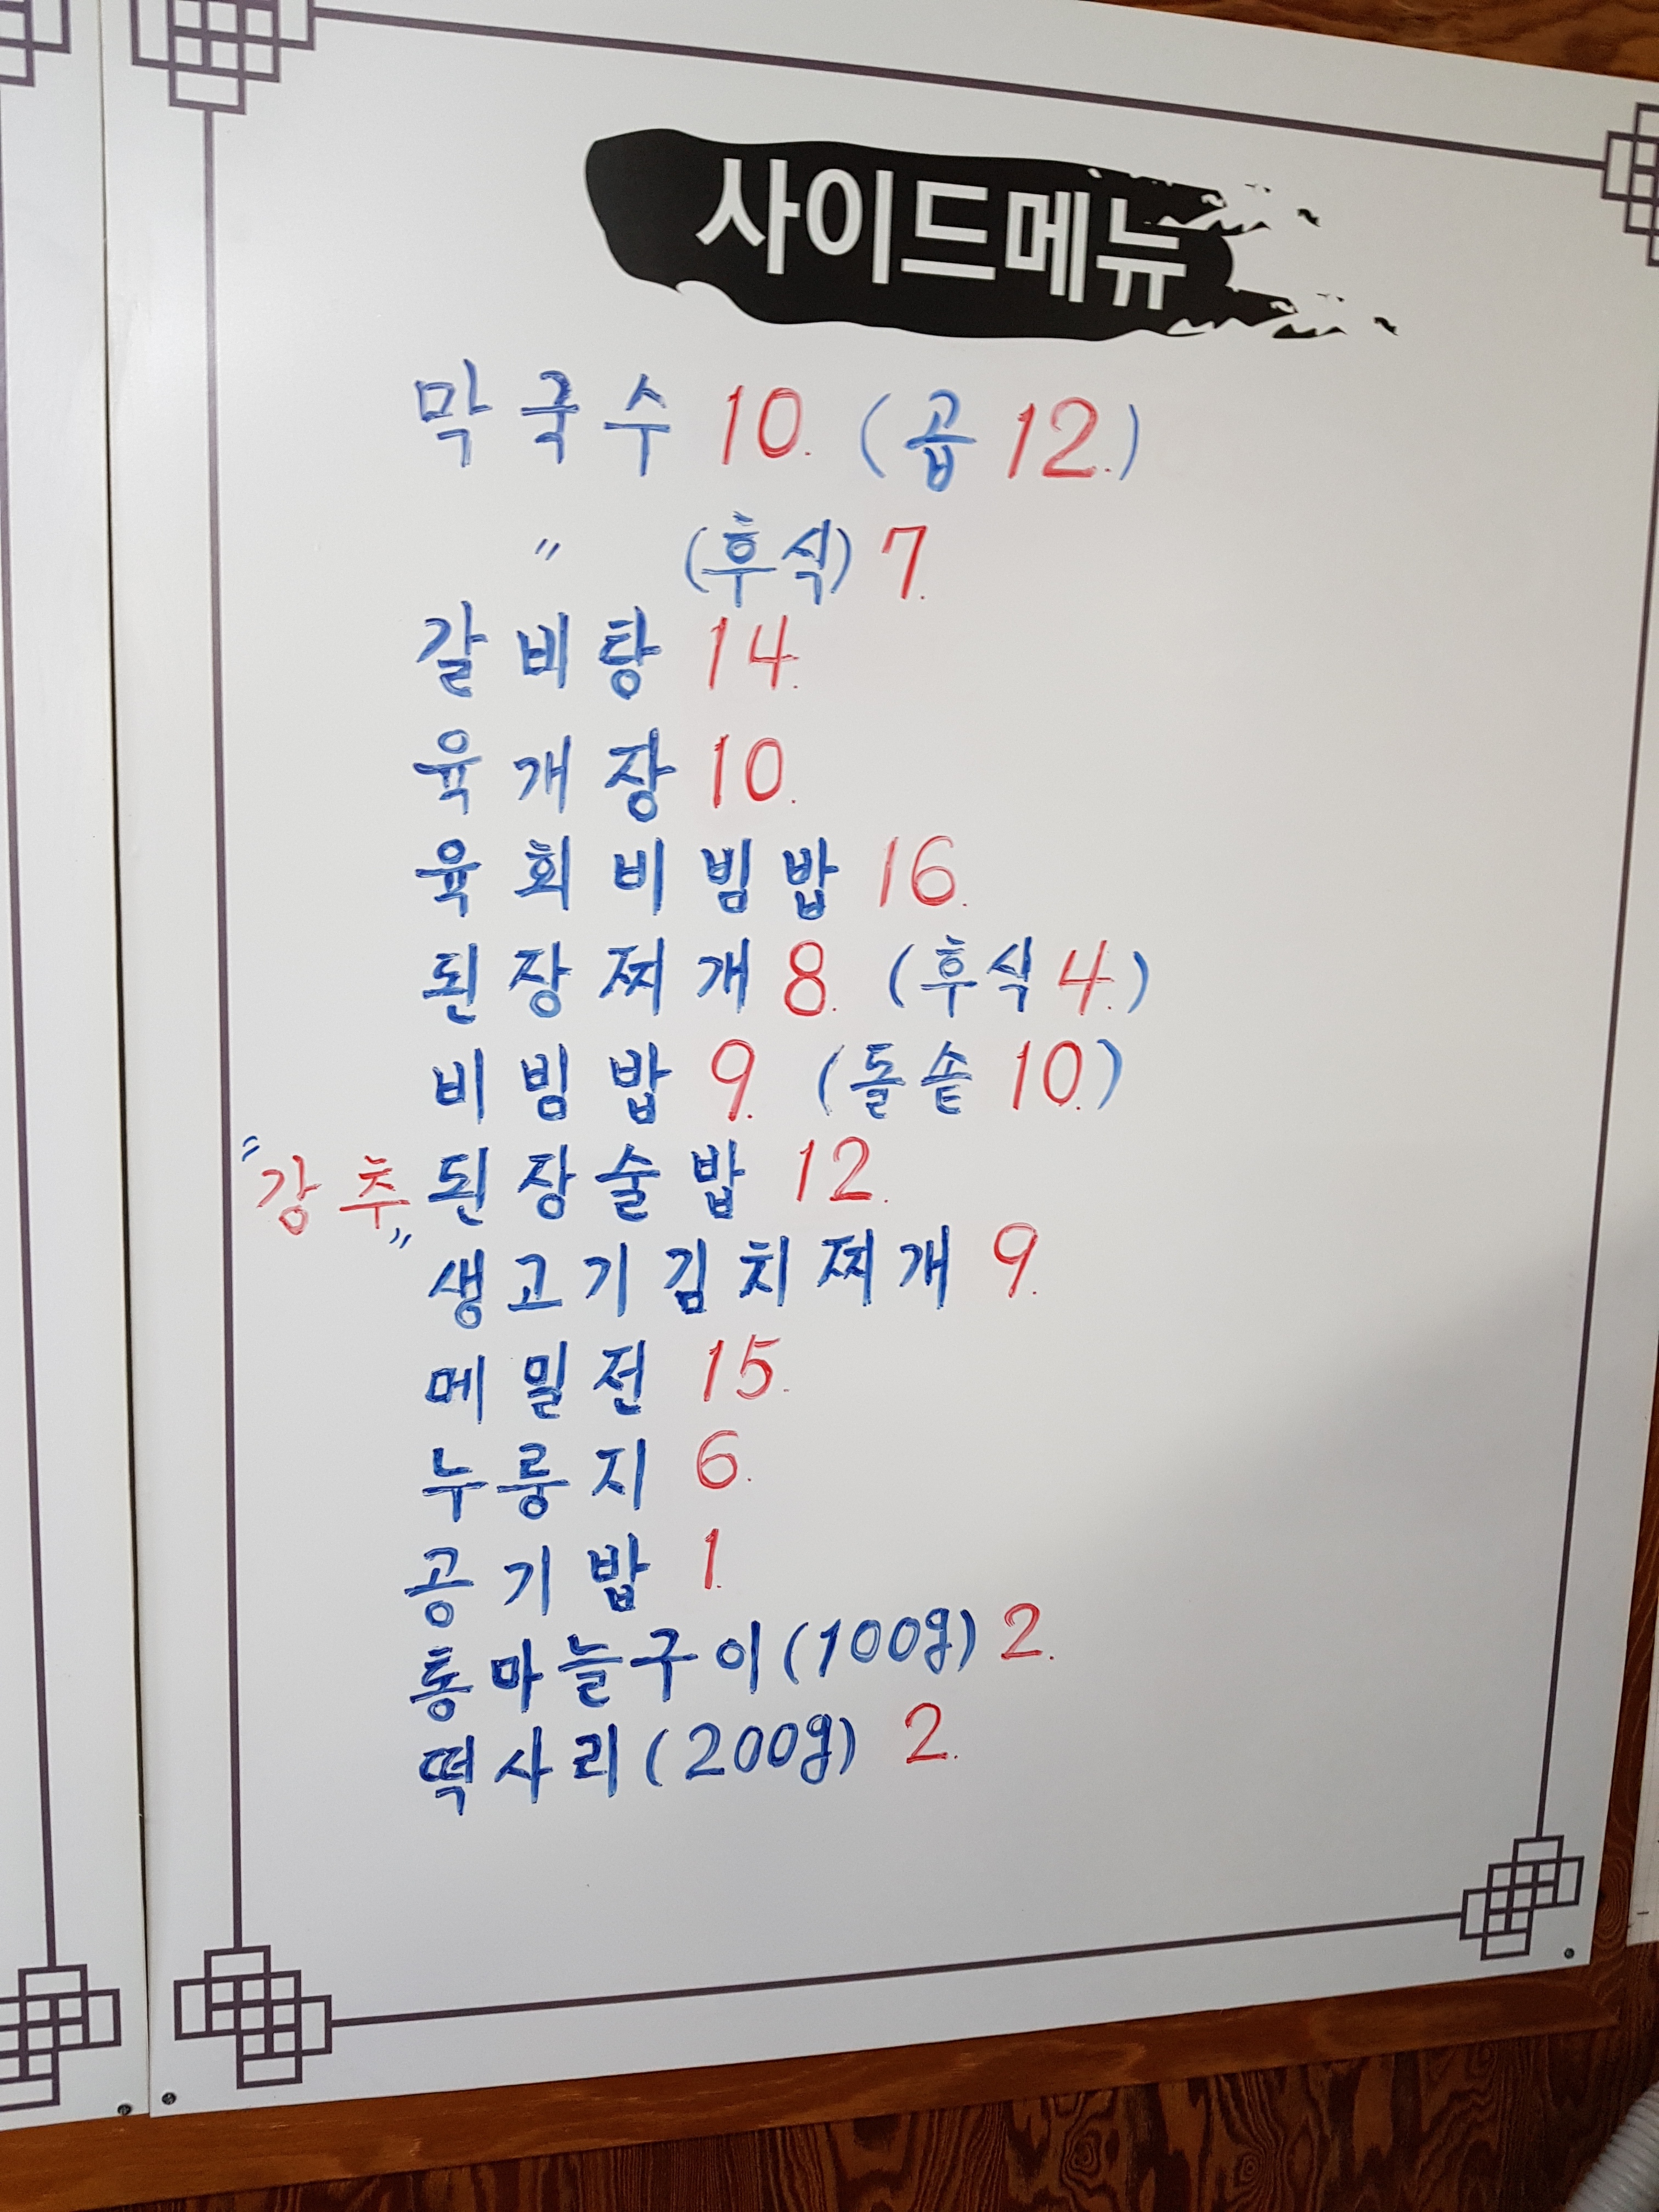 사이드메뉴
막국수 10. (곱 12.)
〃 (후식) 7.
갈비탕 14.
육개장 10.
육회비빔밥 16.
된장찌개 8. (후식 4.)
비빔밥 9. (돌솥 10.)
"강추" 된장술밥 12.
생고기김치찌개 9.
메밀전 15.
누룽지 6.
공기밥 1.
통마늘구이(100g) 2.
떡사리(200g) 2.